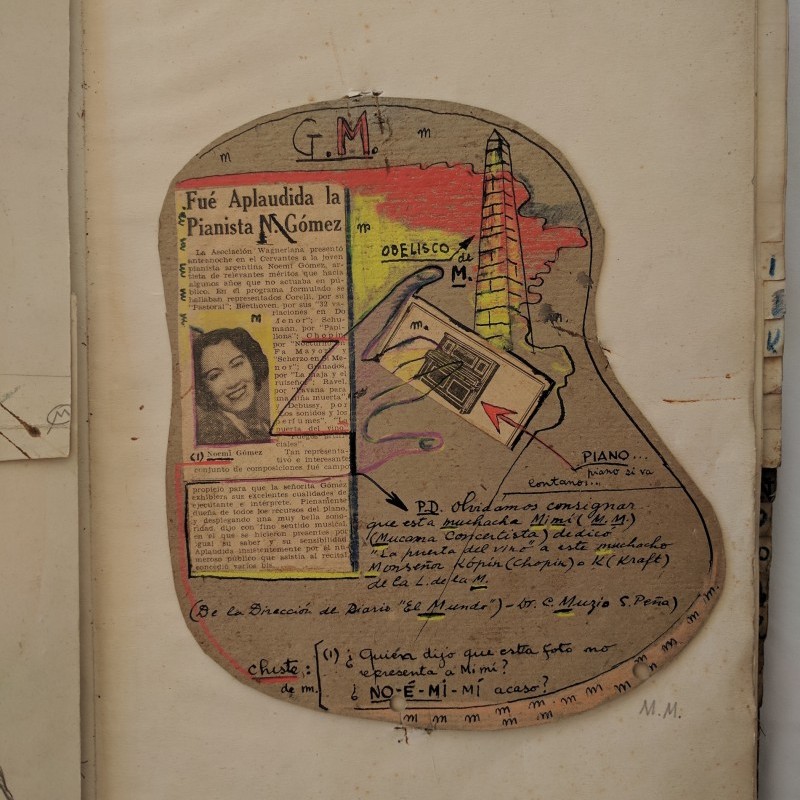 G.M.
m
m
Fué Aplaudida la
Pianista N. Gómez
La Asociación Wagneriana presentó
anteanoche en el Cervantes a la joven
pianista argentina Noemí Gómez, ar-
tista de relevantes méritos que hacía
algunos años que no actuaba en pú-
blico. En el programa formulado se
hallaban representados Corelli, por su
"Pastoral"; Beethoven, por sus "32 va-
riaciones en Do
Menor"; Schu-
mann, por "Papi-
llons"; Chopin
por "Nocturno
Fa Mayor" y
"Scherzo en Si Me-
nor"; Granados,
por "La maja y el
ruiseñor"; Ravel,
por "Pavana para
una niña muerta",
Debussy, por
"Los sonidos y los
perfumes", "La
puerta del vino
ciales".
(1) Noemí Gómez
Tan representa-
tivo e interesante
conjunto de composiciones fué campo
propicio para que la señorita Gómez
exhibiera sus excelentes cualidades de
ejecutante e intérprete. Plenamente
dueña de todos los recursos del piano,
y desplegando una muy bella sono-
ridad, dijo con fino sentido musical,
en el que se hicieron presentes por
igual su saber y su sensibilidad.
Aplaudida insistentemente por el nu-
meroso público que asistía al recital,
concedió varios bis.
m
m
OBELISCO
de
M.
m.
m.
PIANO...
piano si va
lontano...
P.D. Olvidamos consignar
que esta muchacha Mimí ("M.M.)
(Mucama Concertista) dedicó
"La puerta del vino" a este muchacho
Monseñor Kópin (Chopin) o K (Kraft)
de la L. de la M.
(De la Dirección de Diario "El Mundo") - Dr. C. Muzio S. Peña)
Chiste:
de m.
(1) ¿ Quién dijo que esta foto no
representa a Mimí?
¿ NO-É-MÍ-MÍ acaso?
m m m m m m m m m m m
M.M.